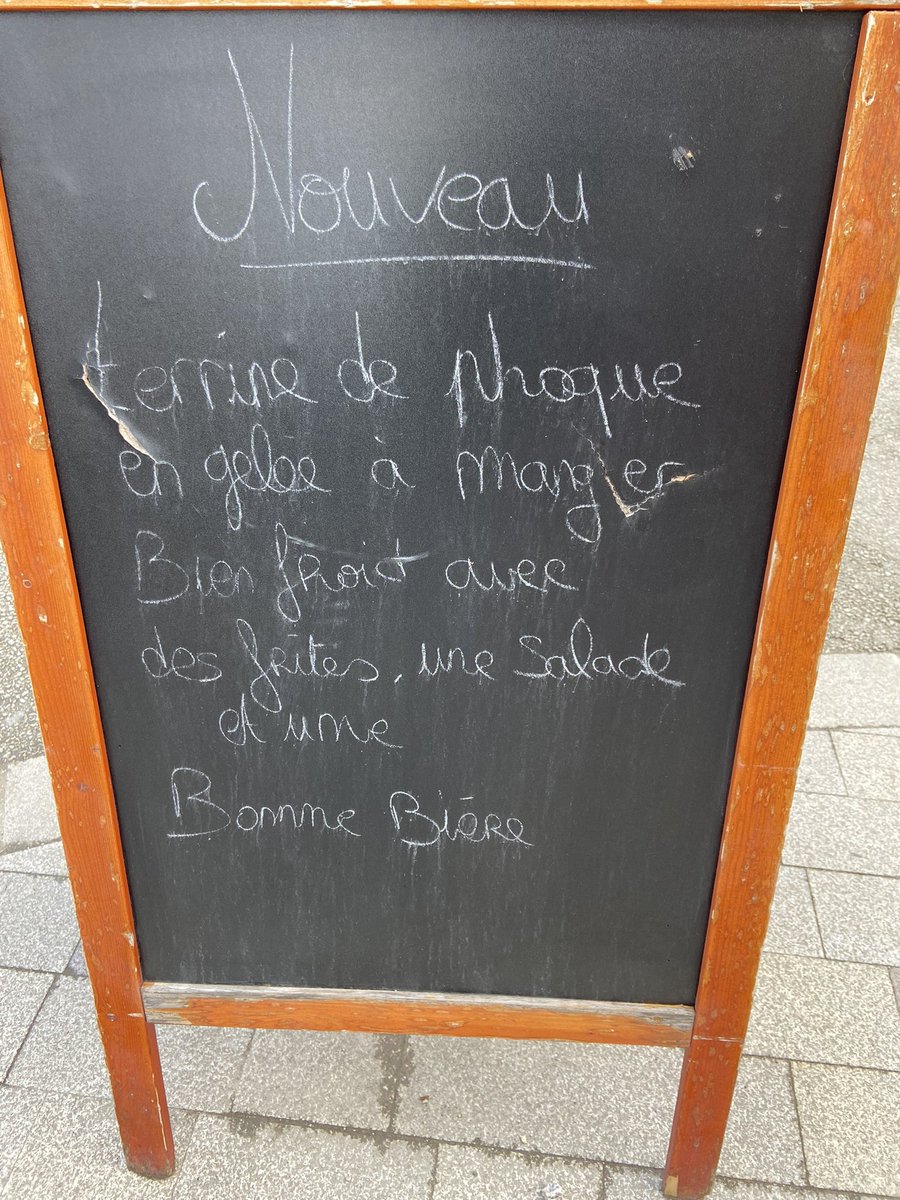 Nouveau
terrine de phoque
en gelée à manger
Bien froid avec
des frites, une Salade
et une
Bonne Bière